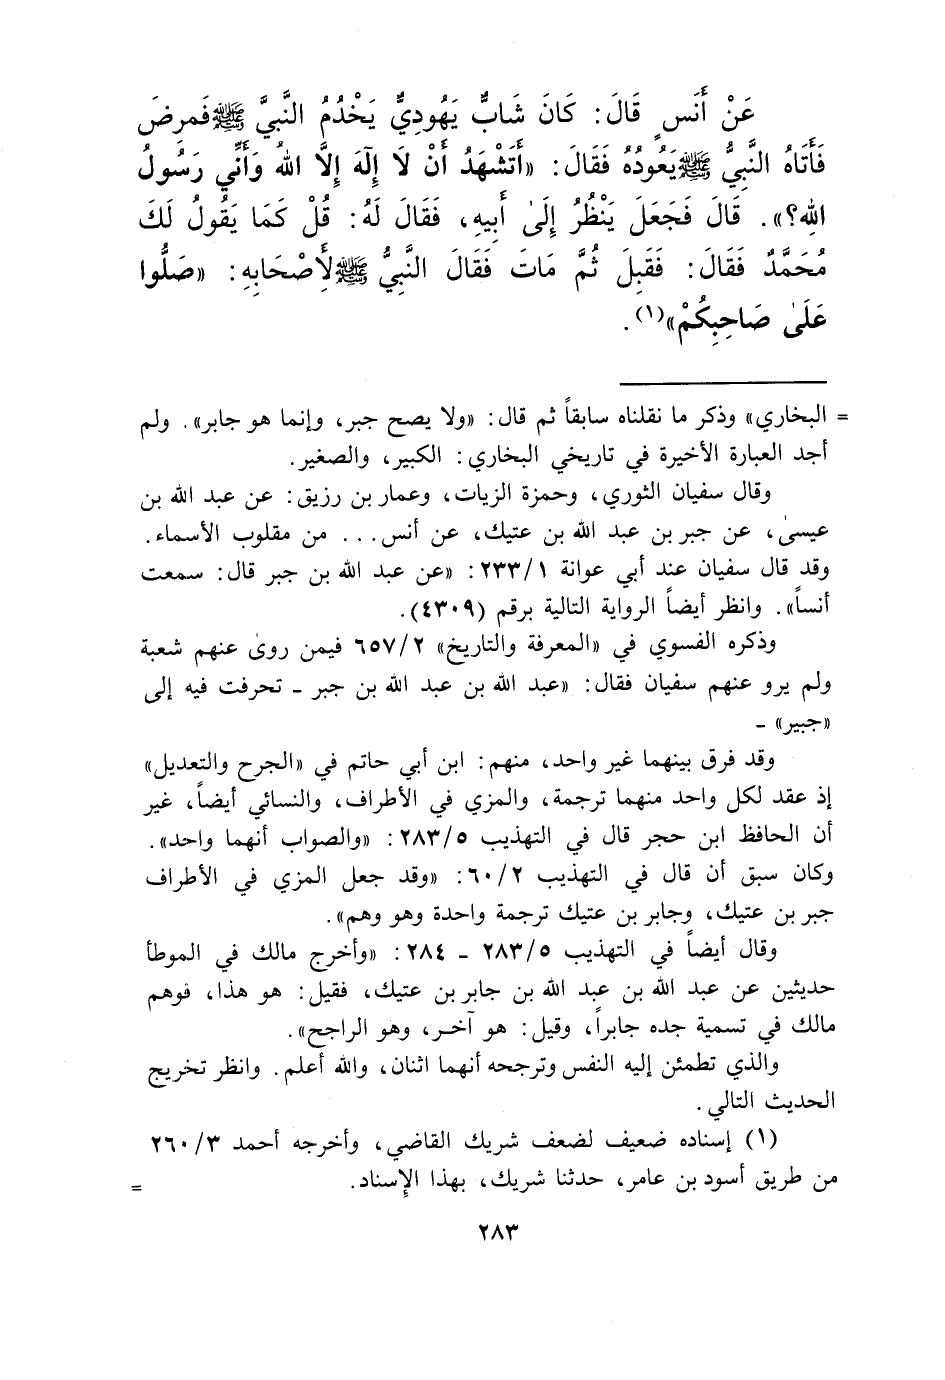 عَنْ أَنَسٍ قَالَ: كَانَ شَابٌّ يَهُودِيٌّ يَخْدُمُ النَّبِيَّ ﷺ فَمَرِضَ
فَأَتَاهُ النَّبِيُّ ﷺ يَعُودُهُ فَقَالَ: «أَتَشْهَدُ أَنْ لَا إِلٰهَ إِلَّا اللهُ وَأَنِّي رَسُولُ
اللهِ؟». قَالَ فَجَعَلَ يَنْظُرُ إِلَىٰ أَبِيهِ، فَقَالَ لَهُ: قُلْ كَمَا يَقُولُ لَكَ
مُحَمَّدٌ فَقَالَ: فَقَبِلَ ثُمَّ مَاتَ فَقَالَ النَّبِيُّ ﷺ لِأَصْحَابِهِ: «صَلُّوا
عَلَىٰ صَاحِبِكُمْ»(١).
= البخاري» وذكر ما نقلناه سابقاً ثم قال: «ولا يصح جبر، وإنما هو جابر». ولم
أجد العبارة الأخيرة في تاريخي البخاري: الكبير، والصغير.
وقال سفيان الثوري، وحمزة الزيات، وعمار بن رزيق: عن عبد الله بن
عيسىٰ، عن جبر بن عبد الله بن عتيك، عن أنس... من مقلوب الأسماء.
وقد قال سفيان عند أبي عوانة ٢٣٣/١: «عن عبد الله بن جبر قال: سمعت
أنساً». وانظر أيضاً الرواية التالية برقم (٤٣٠٩).
وذكره الفسوي في «المعرفة والتاريخ» ٦٥٧/٢ فيمن روىٰ عنهم شعبة
ولم يرو عنهم سفيان فقال: «عبد الله بن عبد الله بن جبر ـ تحرفت فيه إلى
«جبير» ـ
وقد فرق بينهما غير واحد، منهم: ابن أبي حاتم في «الجرح والتعديل»
إذ عقد لكل واحد منهما ترجمة، والمزي في الأطراف، والنسائي أيضاً، غير
أن الحافظ ابن حجر قال في التهذيب ٢٨٣/٥: «والصواب أنهما واحد».
وكان سبق أن قال في التهذيب ٦٠/٢: «وقد جعل المزي في الأطراف
جبر بن عتيك، وجابر بن عتيك ترجمة واحدة وهو وهم».
وقال أيضاً في التهذيب ٢٨٣/٥ ـ ٢٨٤: «وأخرج مالك في الموطأ
حديثين عن عبد الله بن عبد الله بن جابر بن عتيك، فقيل: هو هذا، فوهم
مالك في تسمية جده جابراً، وقيل: هو آخر، وهو الراجح».
والذي تطمئن إليه النفس وترجحه أنهما اثنان، والله أعلم. وانظر تخريج
الحديث التالي.
(١) إسناده ضعيف لضعف شريك القاضي، وأخرجه أحمد ٢٦٠/٣
من طريق أسود بن عامر، حدثنا شريك، بهذا الإسناد. =
٢٨٣